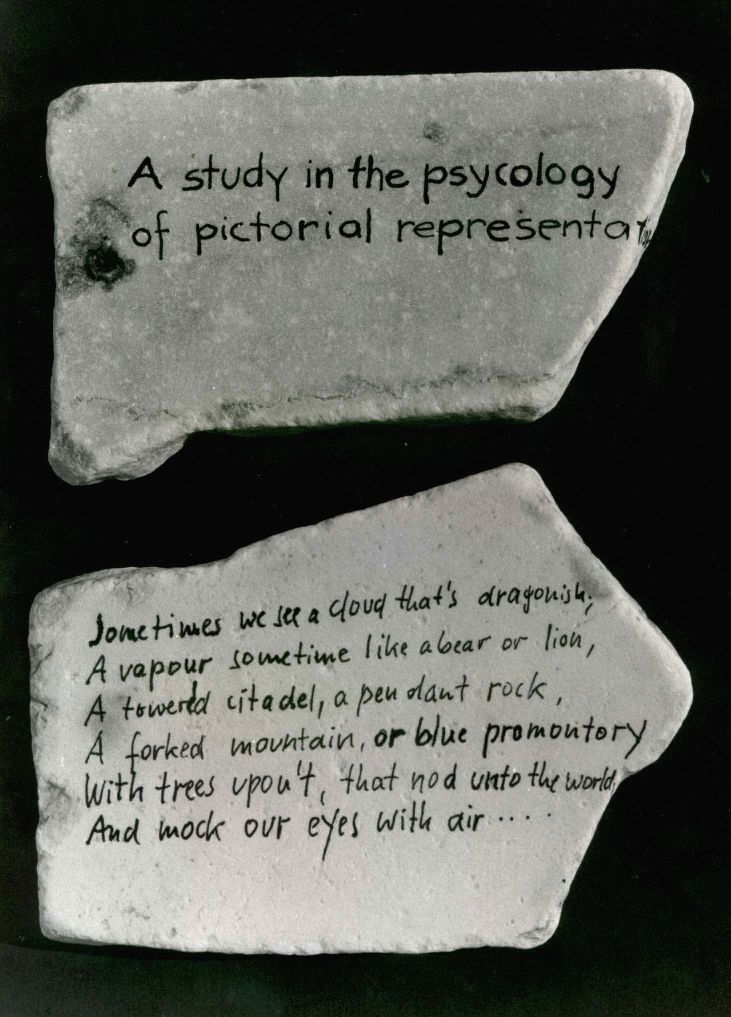 A study in the psycology
of pictorial representation
Sometimes we see a cloud that's dragonish;
A vapour sometime like a bear or lion,
A towered citadel, a pendant rock,
A forked mountain, or blue promontory
With trees upon't, that nod unto the world,
And mock our eyes with air ....